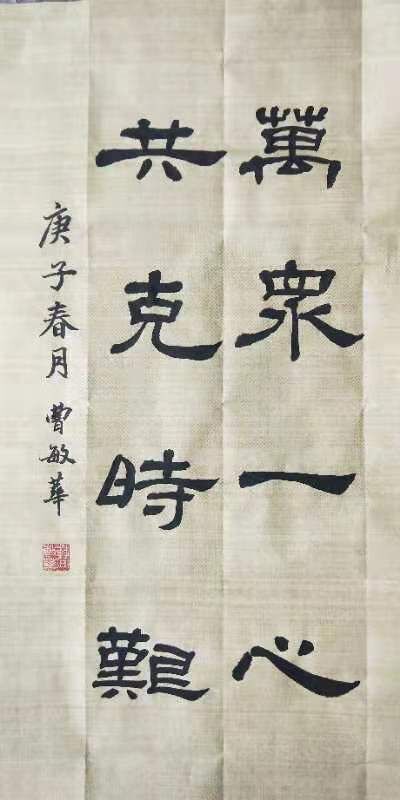 萬眾一心
共克時艱
庚子春月 曹敏華